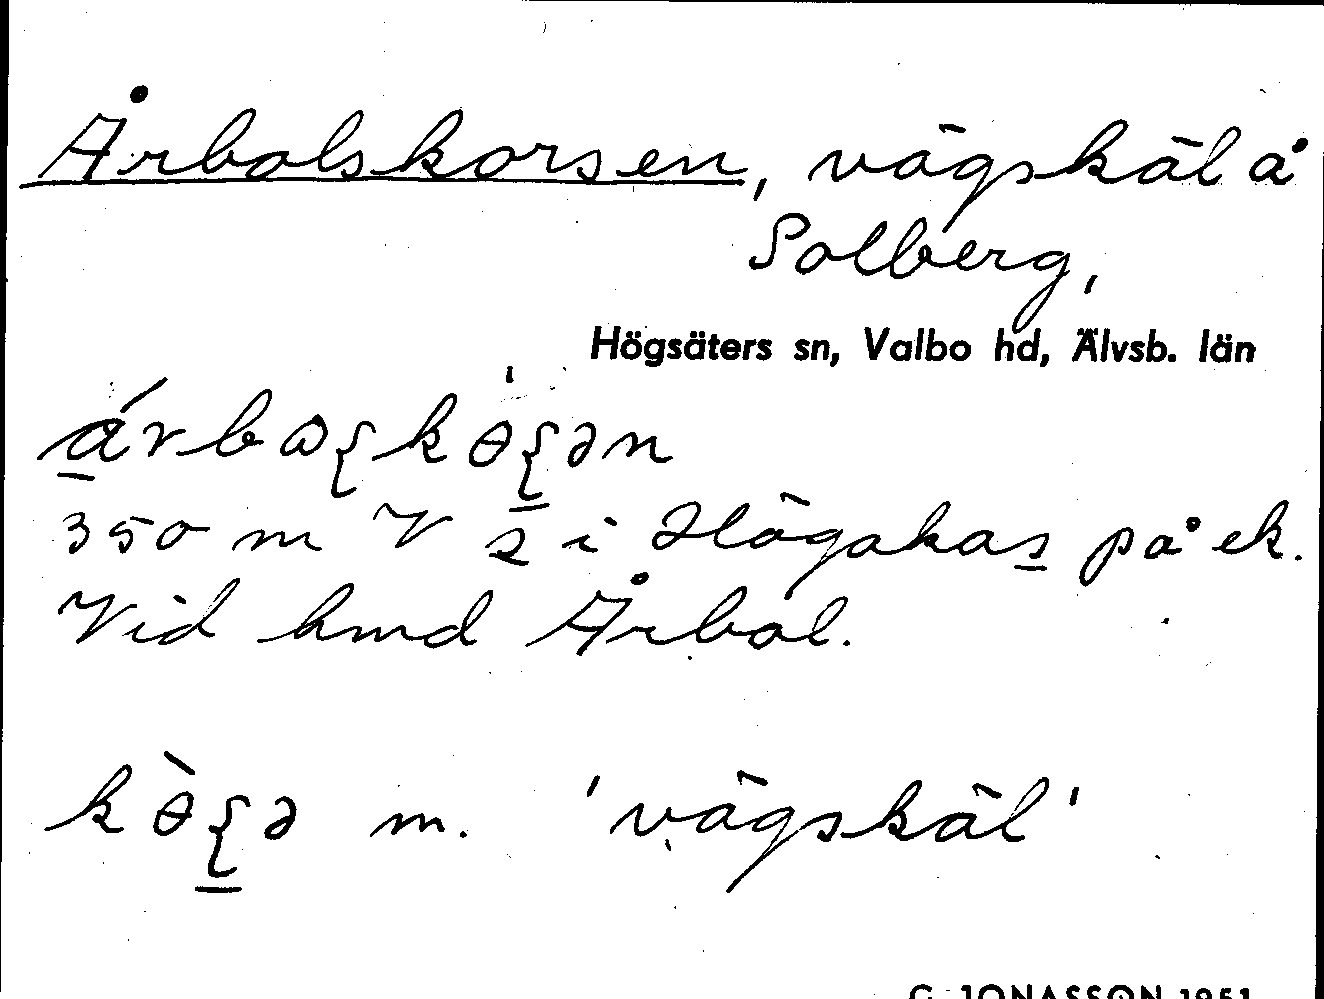 Årbolskorsen, vägskäl å
Solberg,
Högsäters sn, Valbo hd, Älvsb. län
350 m V s i Högakas på ek.
Vid hmd Årbol.
m. 'vägskäl'
G. JONASSON 1951